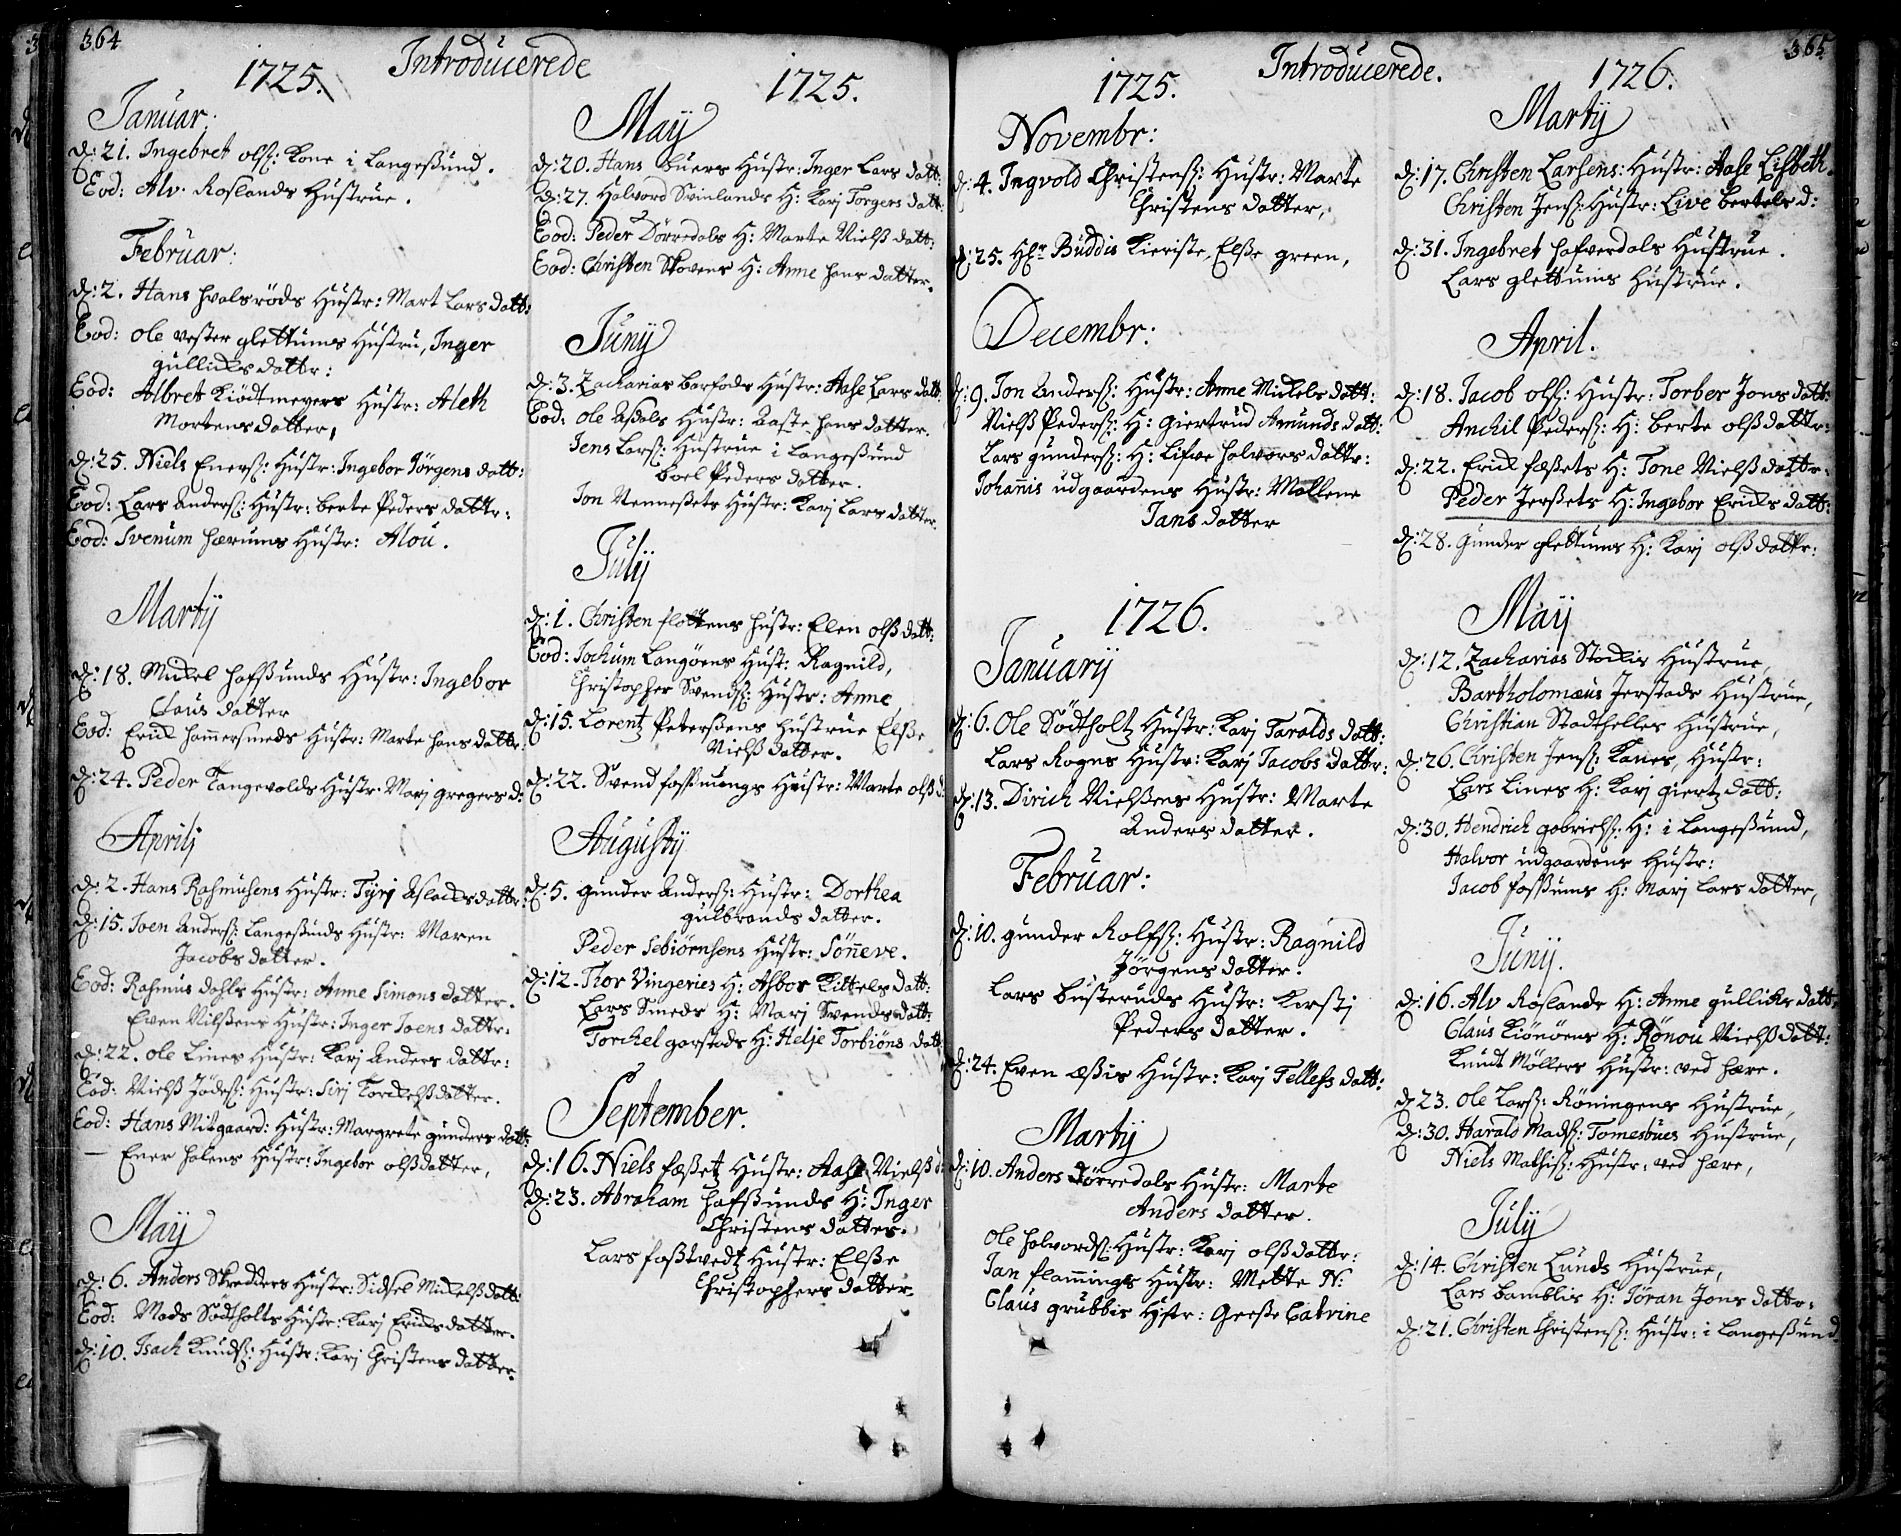 364
Introducerede
1725.
Januar:
d: 21. Ingebret olß: Kone i Langeßund.
Eod: Alv. Roslands Hustrue.
Februar:
d: 2. Hans Hvalsröds Hustr: Mart Lars datt:
Eod: ole vester glettums Hustru, Inger
gullichs dattr:
Eod: Albret Kiödtmeyers Hustr: Aleth
Mortens datter,
d: 25. Niels Enerß: Hustr: Ingebor Jörgens datt:
Eod: Lars Anderß: Hustr: berte Peders dattr:
Eod: Svenum Herums Hustr: Alou.
Martij
d: 18. Mickel Hafßunds Hustr: Ingebor
Claus datter
Eod: Erick Hammersmeds Hustr: Marte Hans dattr
d: 24. Peder Tangevalds Hustr: Marj gregers d:
Aprilj
d: 2. Hans Rasmusens Hustr: Tyrj Aslachs dattr:
d: 15. Joen Anderß: Langeßunds Hustr: Maren
Jacobs datter.
Eod: Rasmus dahls Hustr: Anne Simons datter.
Even Nilßens Hustr: Inger Joens dattr:
d: 22. ole Lines Hustr: Karj Anders dattr:
Eod: Nielß Jödeß: Hustr: Sirj Torchelß datter.
Eod: Hans Mitgaard: Hustr: Margrete gunders datt:
— Ener Holens Hustr: Ingebor olß datter,
Maij
d: 6. Anders Skredders Hustr: Sidsel Mickelß datt:
Eod: Mads Södtholts Hustr: Karj Erichs datter.
d: 10. Isach Knudß: Hustr: Karj Christens datter.
1725.
Maij
d: 20. Hans buers Hustr: Inger Lars datt:
d: 27. Halvord Svinlands H: Karj Torgers datt:
Eod: Peder Dörredals H: Marte Nielß datt:
Eod: Christen Skovens H: Anne Hans datter.
Junij
d: 3. Zacharias barfods Hustr: Aase Lars datt:
Eod: ole Aßdals Hustr: Aaste Hans datter.
Jens Larß: Hustrue i Langeßund
boel Peders datter.
Jon Venneßets Hustr: Karj Lars datter.
Julij
d: 1. Christen flottens Hustr: Elen olß datt:
Eod: Jochum Langöens Hust: Ragnild,
Christopher Svendß: Hustr: Anne
d: 15. Lorentz Peterßens Hustrue Elße
Nielß datter.
d: 22. Svend foßmungs Hustr: Marte olß d:
Augustij
d: 5. gunder Anderß: Hustr: Dorthea
gulbrands datter.
Peder Sebiörnsens Hustr: Sönneve.
d: 12. Thor Vingeries H: Asbor Kittels datt:
Lars Smeds H: Marj Svends datt:
Torchel garstads H: Helje Torbiöns datt:
September.
d: 16. Niels feßetz Hustr: Aase Nielß d:
d: 23. Abraham Hafßunds H: Inger
Christens datter.
Lars foßtvedtz Hustr: Elße
Christophers datter.
365
Introducerede.
1725.
Novembr:
d: 4. Ingvold Christenß: Hustr: Marte
Christens datter,
d: 25. Hr Buddis Kieriste, Elße green,
Decembr:
d: 9. Jon Anderß: Hustr: Anne Mickels datt:
Nielß Pederß: H: Giertrud Amunds datt:
Lars gunderß: H: Lisve Halvors dattr:
Johannis udgaardens Hustr: Mallene
Jans datter
1726.
Januarij
d: 6. Ole Södtholtz Hustr: Karj Taralds datt:
Lars Rogns Hustr: Karj Jacobs dattr:
d: 13. Dirich Nielßens Hustr: Marte
Anders datter.
Februar:
d: 10. gunder Rolfß: Hustr: Ragnild
Jörgens datter.
Lars busteruds Hustr: Kirstj
Peders datter.
d: 24. Even æßis Hustr: Karj Tellefs datt:
Martij
d: 10. Anders Dörredals Hustr: Marte
Anders datter.
ole Halvordß: Hustr: Karj olß dattr:
Jan flammings Hustr: Mette N:
Claus grubbis Hustr: Geeße Catrine
1726.
Martij
d: 17. Christen Larsens: Hustr: Aase Lisbeth.
Christen Jenß: Hustr: Live bertels d:
d: 31. Ingebret Hafverdals Hustrue.
Lars glettums Hustrue.
April.
d: 18. Jacob olß: Hustr: Torber Jons datt:
Anchil Pederß: H: berte olß dattr:
d: 22. Erick feßets H: Tone Nielß dattr:
Peder Jerßets H: Ingebor Erichs datt:
d: 28. Gunder glettums H: Karj olß dattr:
Maij
d: 12. Zacharias Stockis Hustrue,
Bartholomæus Jerstads Hustrue,
Christian Stadthelles Hustrue,
d: 26. Christen Jenß: Kanes, Hustr:
Lars Lines H: Karj giertz datt:
d: 30. Hendrich gabrielß: H: i Langeßund,
Halvor udgaardens Hustr:
Jacob foßums H: Marj Lars datter,
Junij.
d: 16. Alv Roslands H: Anne gullichs datt:
Claus Kiönöens H: Rönou Nielß datt:
Knudt Möllers Hustr: ved Hære.
d: 23. ole Larß: Röningens Hustrue,
d: 30. Harald Madß: Tomesbues Hustrue,
Niels Mathisß: Hustr: ved Hære,
Julij
d: 14. Christen Lunds Hustrue,
Lars bamblis H: Jöran Jons dattr:
d: 21. Christen Christenß: Hustr: i Langeßund